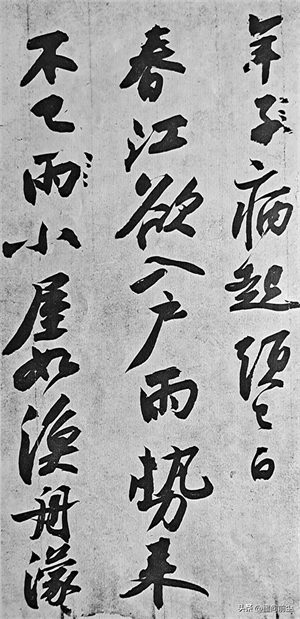 年子病起頭已白
春江欲入戶雨勢來
不已雨小屋如漁舟濛
头条